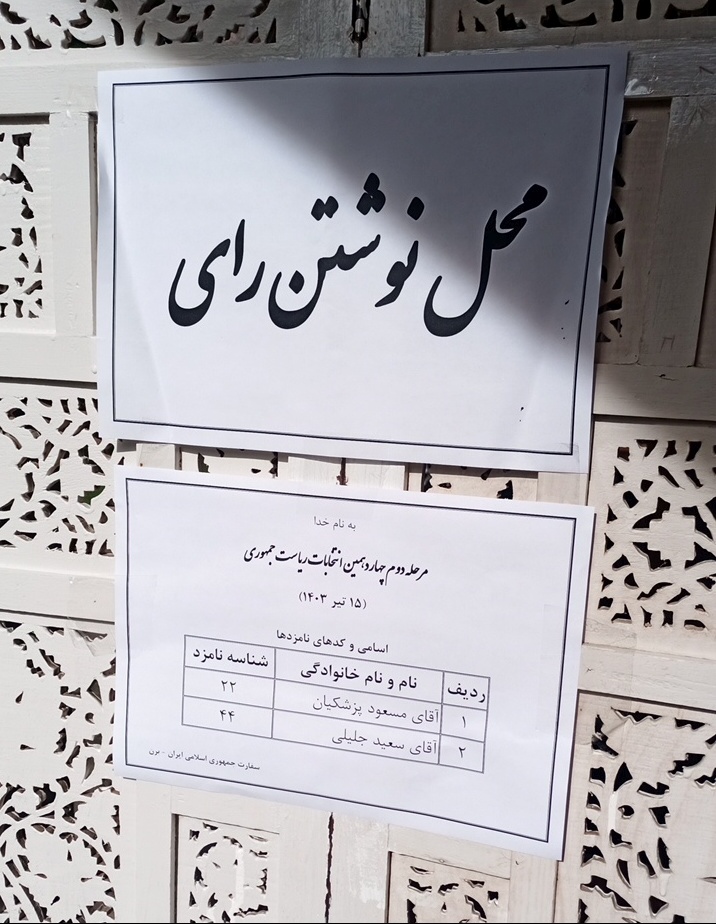 محل نوشتن رای
به نام خدا
مرحله دوم چهاردهمین انتخابات ریاست جمهوری
(۱۵ تیر ۱۴۰۳)
اسامی و کدهای نامزدها
ردیف نام و نام خانوادگی شناسه نامزد
۱ آقای مسعود پزشکیان ۲۲
۲ آقای سعید جلیلی ۴۴
سفارت جمهوری اسلامی ایران - برن